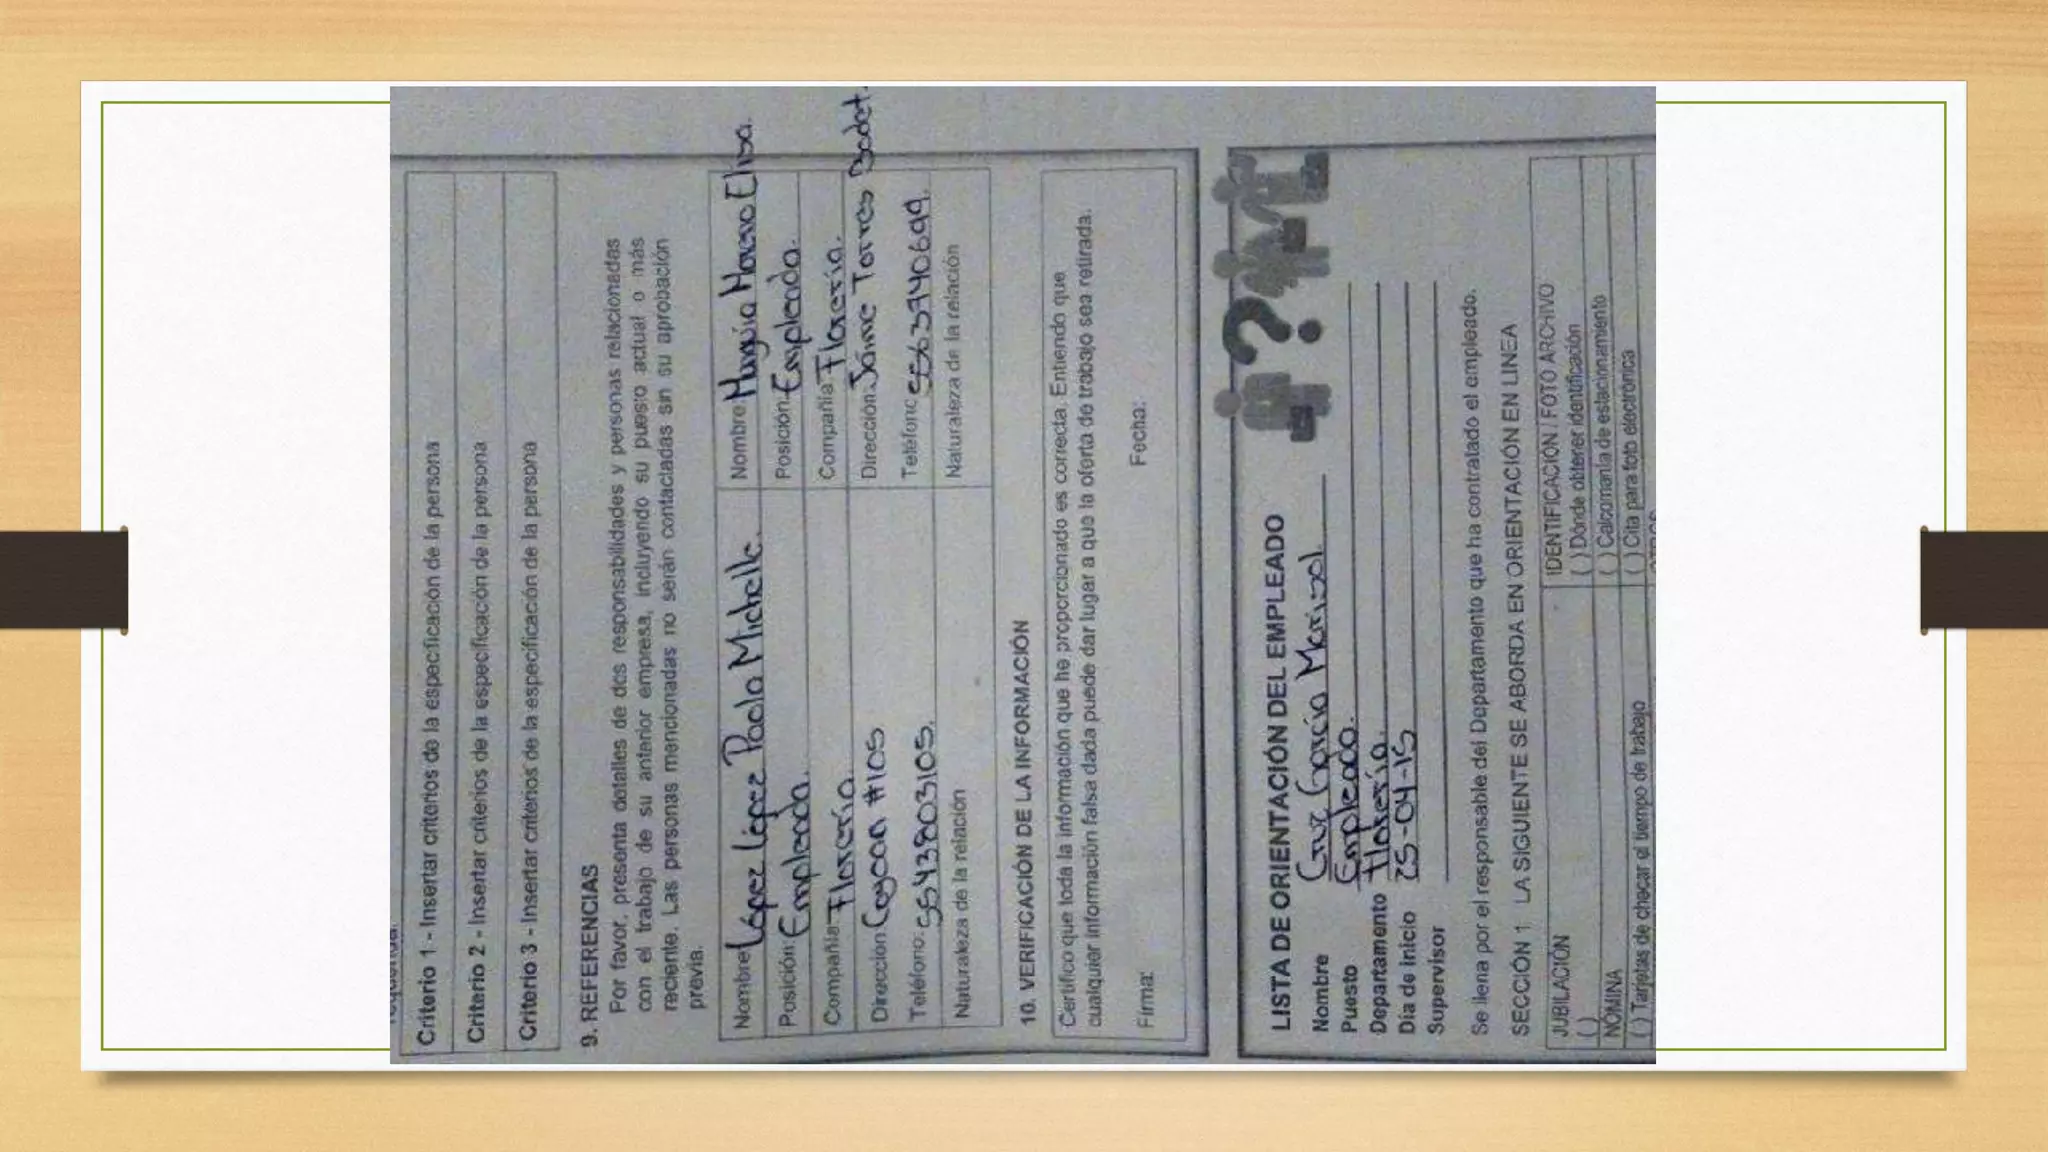 Criterio 1 - Insertar criterios de la especificación de la persona
Criterio 2 - Insertar criterios de la especificación de la persona
Criterio 3 - Insertar criterios de la especificación de la persona
9. REFERENCIAS
Por favor, presenta detalles de dos responsabilidades y personas relacionadas
con el trabajo de su anterior empresa, incluyendo su puesto actual o más
reciente. Las personas mencionadas no serán contactadas sin su aprobación
previa.
Nombre López López Paola Michelle.
Posición: Empleada.
Compañía Florería
Dirección Coyoan #105
Teléfono: 5543803105.
Naturaleza de la relación
Nombre Munguía Moreno Elisa.
Posición: Empleada.
Compañía Florería.
Dirección: Jaime Torres Bodet.
Teléfono: 5563740699.
Naturaleza de la relación
10. VERIFICACIÓN DE LA INFORMACIÓN
Certifico que toda la información que he proporcionado es correcta. Entiendo que
cualquier información falsa dada puede dar lugar a que la oferta de trabajo sea retirada.
Firma: Fecha:
LISTA DE ORIENTACIÓN DEL EMPLEADO
Nombre Cruz García Marisol.
Puesto Empleado.
Departamento Florería.
Dia de inicio 25-04-15
Supervisor
Se llena por el responsable del Departamento que ha contratado el empleado.
SECCIÓN 1 LA SIGUIENTE SE ABORDA EN ORIENTACIÓN EN LINEA
JUBILACIÓN
( )
NÓMINA
( ) Tarjetas de checar el tiempo de trabajo
IDENTIFICACIÓN / FOTO ARCHIVO
( ) Dónde obtener identificación
( ) Calcomanía de estacionamiento
( ) Cita para foto electrónica